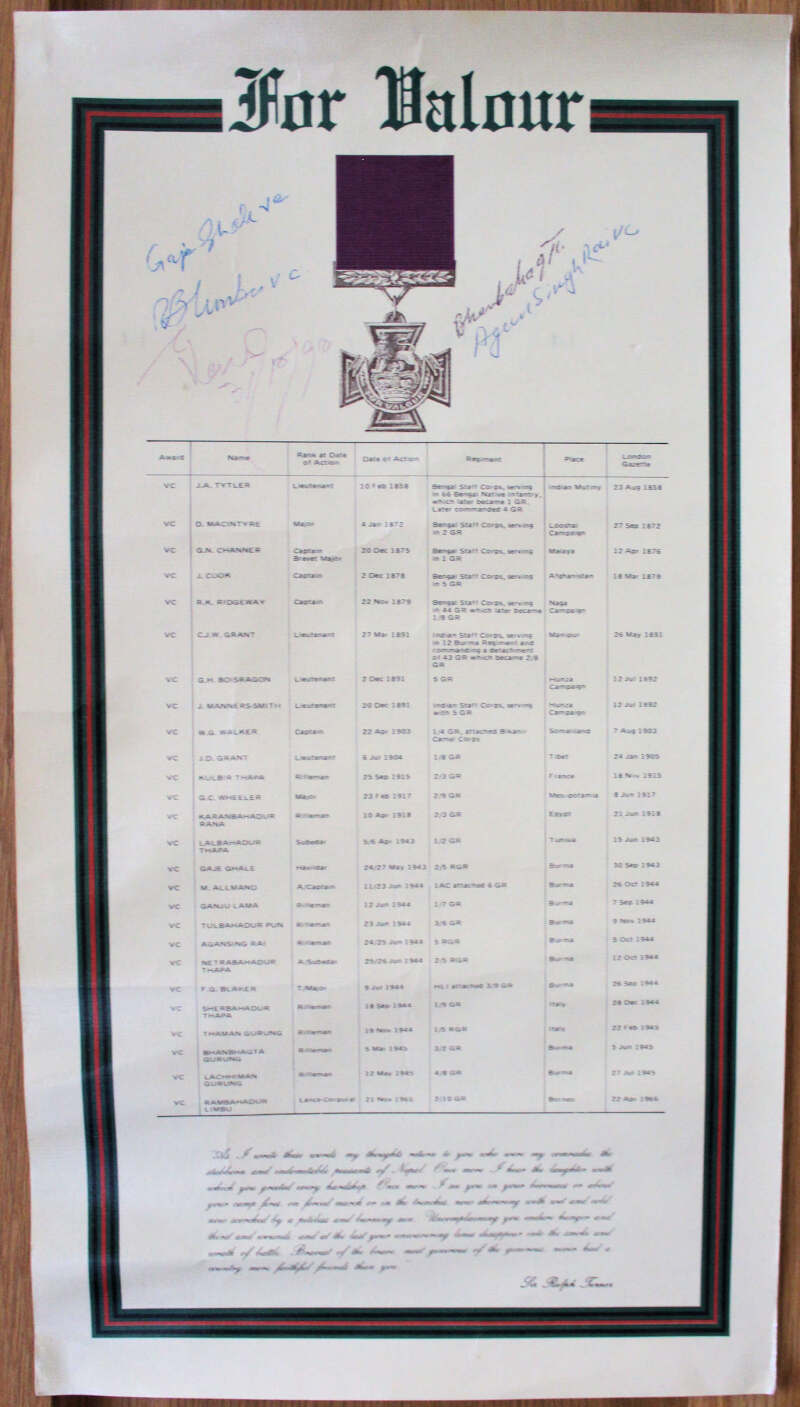 For Valour
Gaje Ghale VC
RBLimbu VC
Bhanbahagta
Agansingh Rai VC
FOR VALOUR
Award Name Rank at Date of Action Date of Action Regiment Place London Gazette
VC J.A. TYTLER Lieutenant 10 Feb 1858 Bengal Staff Corps, serving in 66 Bengal Native Infantry, which later became 1 GR, Later commanded 4 GR Indian Mutiny 23 Aug 1858
VC D. MACINTYRE Major 4 Jan 1872 Bengal Staff Corps, serving in 2 GR Looshai Campaign 27 Sep 1872
VC G.N. CHANNER Captain Brevet Major 20 Dec 1875 Bengal Staff Corps, serving in 1 GR Malaya 12 Apr 1876
VC J. COOK Captain 2 Dec 1878 Bengal Staff Corps, serving in 5 GR Afghanistan 18 Mar 1879
VC R.K. RIDGEWAY Captain 22 Nov 1879 Bengal Staff Corps, serving in 44 GR which later became 1/8 GR Naga Campaign
VC C.J.W. GRANT Lieutenant 27 Mar 1891 Indian Staff Corps, serving in 12 Burma Regiment and commanding a detachment of 43 GR which became 2/8 GR Manipur 26 May 1891
VC G.H. BOISRAGON Lieutenant 2 Dec 1891 5 GR Hunza Campaign 12 Jul 1892
VC J. MANNERS-SMITH Lieutenant 20 Dec 1891 Indian Staff Corps, serving with 5 GR Hunza Campaign 12 Jul 1892
VC W.G. WALKER Captain 22 Apr 1903 1/4 GR, attached Bikanir Camel Corps Somaliland 7 Aug 1903
VC J.D. GRANT Lieutenant 6 Jul 1904 1/8 GR Tibet 24 Jan 1905
VC KULBIR THAPA Rifleman 25 Sep 1915 2/3 GR France 18 Nov 1915
VC G.C. WHEELER Major 23 Feb 1917 2/9 GR Mesopotamia 8 Jun 1917
VC KARANBAHADUR RANA Rifleman 10 Apr 1918 2/3 GR Egypt 21 Jun 1918
VC LALBAHADUR THAPA Subedar 5/6 Apr 1943 1/2 GR Tunisia 15 Jun 1943
VC GAJE GHALE Havildar 24/27 May 1943 2/5 RGR Burma 30 Sep 1943
VC M. ALLMAND A/Captain 11/23 Jun 1944 IAC attached 6 GR Burma 26 Oct 1944
VC GANJU LAMA Rifleman 12 Jun 1944 1/7 GR Burma 7 Sep 1944
VC TULBAHADUR PUN Rifleman 23 Jun 1944 3/6 GR Burma 9 Nov 1944
VC AGANSING RAI Rifleman 24/25 Jun 1944 5 RGR Burma 5 Oct 1944
VC NETRABAHADUR THAPA A/Subedar 25/26 Jun 1944 2/5 RGR Burma 12 Oct 1944
VC F.G. BLAKER T/Major 9 Jul 1944 HLI attached 3/9 GR Burma 26 Sep 1944
VC SHERBAHADUR THAPA Rifleman 18 Sep 1944 1/9 GR Italy 28 Dec 1944
VC THAMAN GURUNG Rifleman 19 Nov 1944 1/5 RGR Italy 22 Feb 1945
VC BHANBHAGTA GURUNG Rifleman 5 Mar 1945 3/2 GR Burma 5 Jun 1945
VC LACHHIMAN GURUNG Rifleman 12 May 1945 4/8 GR Burma 27 Jul 1945
VC RAMBAHADUR LIMBU Lance-Corporal 21 Nov 1965 2/10 GR Borneo 22 Apr 1966
"As I write these words my thoughts return to you who were my comrades, the
stubborn and indomitable peasants of Nepal. Once more I hear the laughter with
which you greeted every hardship. Once more I see you in your bivouacs or about
your camp fires, on forced march or in the trenches, now shivering with wet and cold,
now scorched by a pitiless and burning sun. Uncomplaining you endure hunger and
thirst and wounds, and at the last your unwavering lines disappear into the smoke and
wrath of battle. Bravest of the brave, most generous of the generous, never had a
country more faithful friends than you."
Sir Ralph Turner